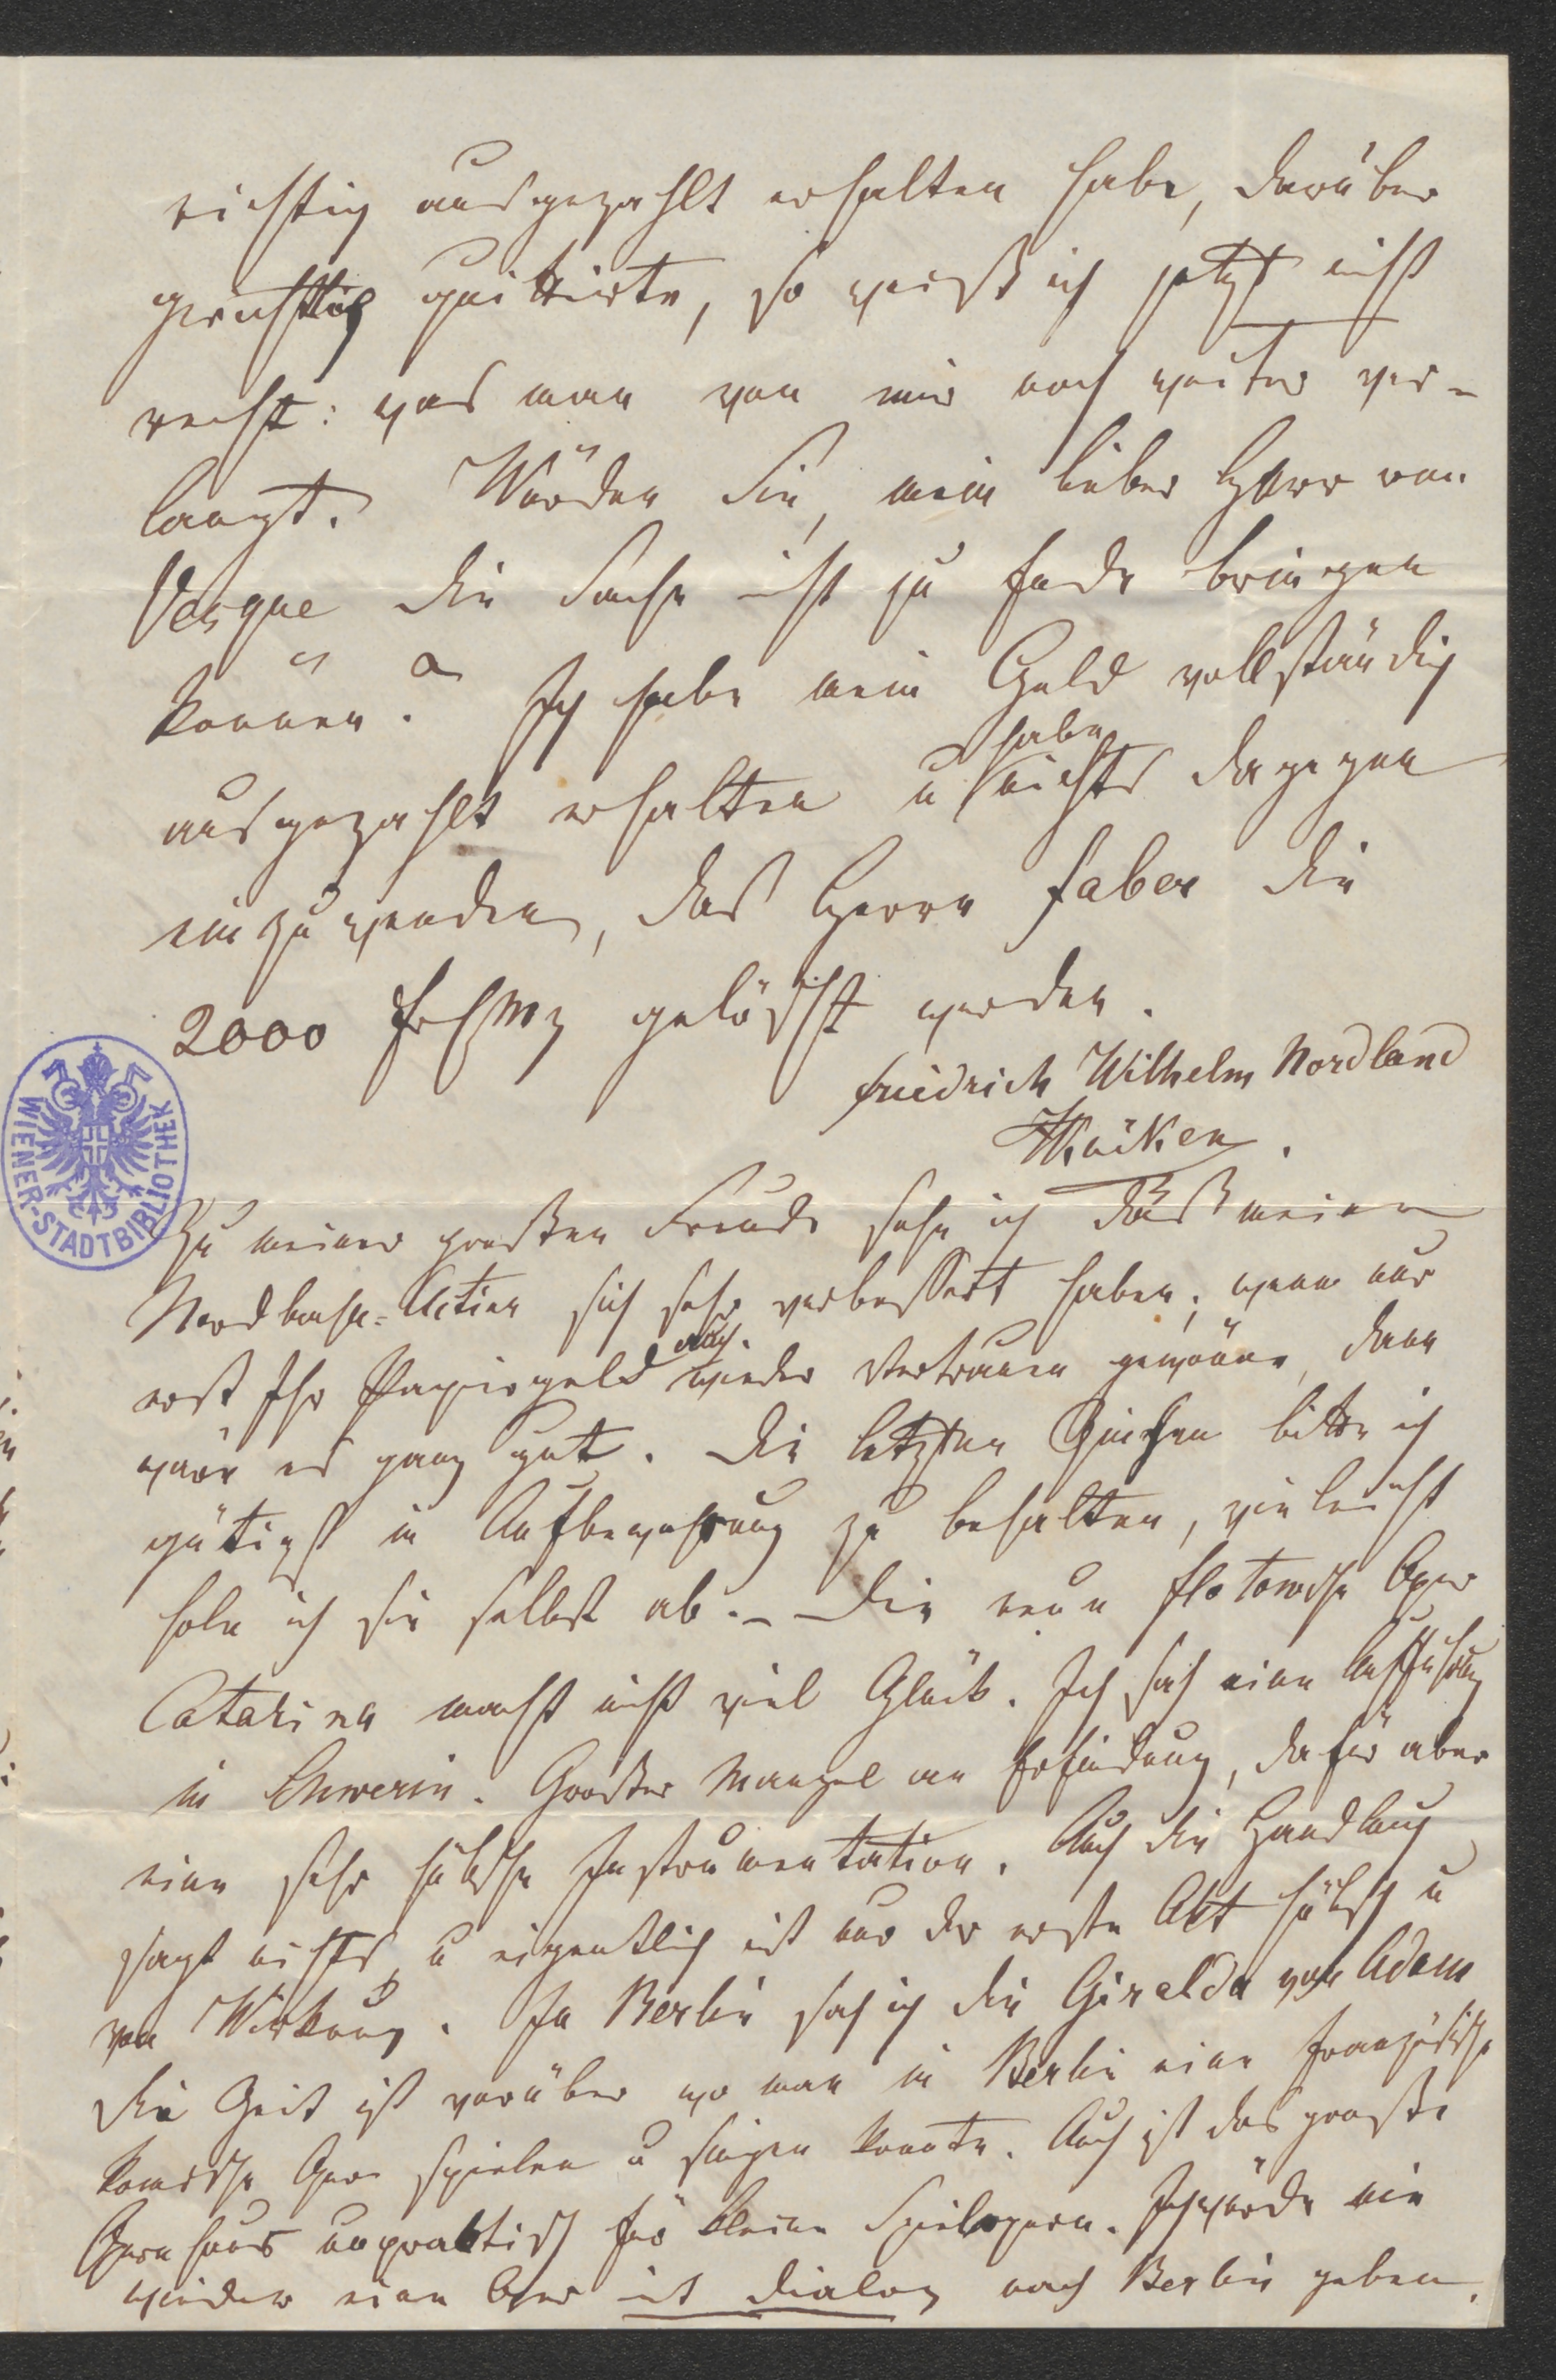 richtig ausgezahlt erhalten habe, darüber
gerichtlich quittirte, so weiß ich jetzt nicht
recht: was man von mir noch weiter ver-
langt. Würden Sie, mein lieber Herr von
Vesque die Sache nicht zu Ende bringen
können? Ich habe mein Geld vollständig
ausgezahlt erhalten u habe nichts dagegen
einzuwenden, daß Herrn Faber die
2000 gelöscht werden.
Friedrich Wilhelm Nordland
Kücken.
Zu meiner großen Freude sehe ich daß meine
Nordbahn-Actien sich sehr verbessert haben; wenn nur
erst Ihr Papiergeld auch wieder Vertrauen gewönne, dann
wäre es ganz gut. Die letzten bitte ich
gütigst in Aufbewahrung zu behalten, vieleicht
hole ich sie selbst ab. – Die neue Flotowsche Oper
Catarina macht nicht viel Glück. Ich sah eine Aufführung
in Schwerin. Großer Mangel an Erfindung, dafür aber
eine sehr hübsche Instrumentation. Auch die Handlung
sagt nichts, u eigentlich ist nur der erste Akt hübsch u
von Wirkung. In Berlin sah ich die Giralda von Adam
Die Zeit ist vorüber wo man in Berlin eine französische
komische Oper spielen u singen konnte. Auch ist das große
Opernhaus unpraktisch für kleine Spielopern. Ich würde nie
wieder eine Oper mit Dialog nach Berlin geben.
WIENER-STADTBIBLIOTHEK